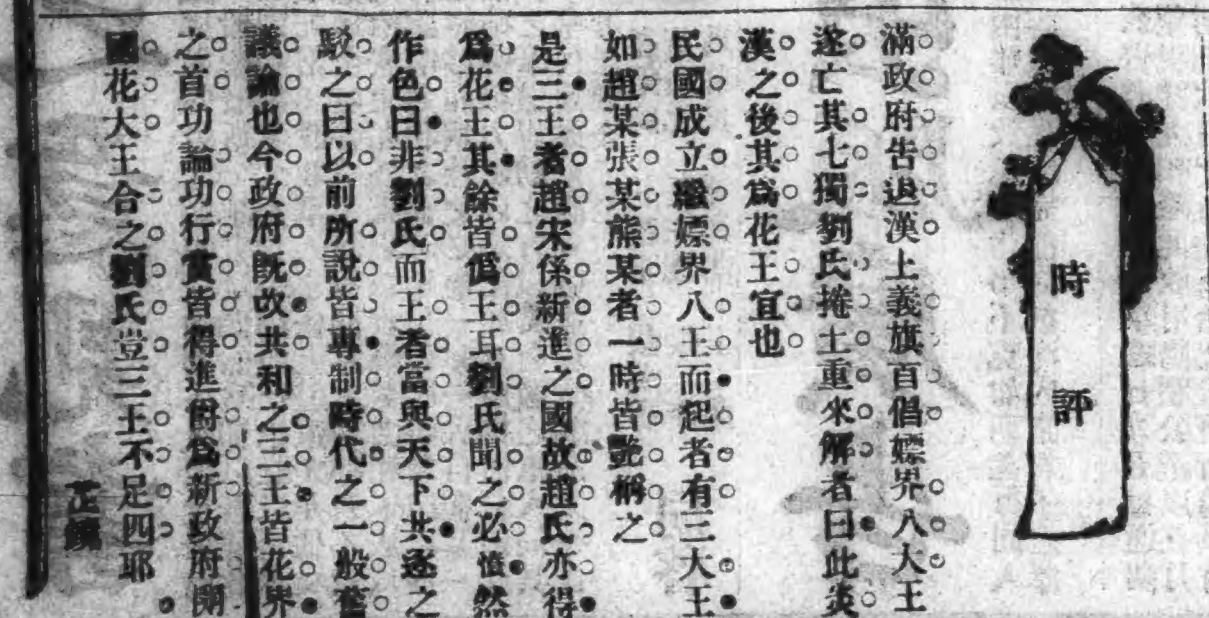 時評
滿政府告退漢上義旗百倡嫖界八大王
遂亡其七獨劉氏捲土重來解者曰此炎
漢之後其爲花王宜也
民國成立繼嫖界八王而起者有三大王
如趙某張某熊某者一時皆艷稱之
是三王者趙宋係新進之國故趙氏亦得
爲花王其餘皆僞王耳劉氏聞之必憤然
作色曰非劉氏而王者當與天下共逐之
駁之曰以前所說皆專制時代之一般舊
議論也今政府旣改共和之三王皆花界
之首功論功行賞皆得進爵爲新政府開
國花大王合之劉氏豈三王不足四耶